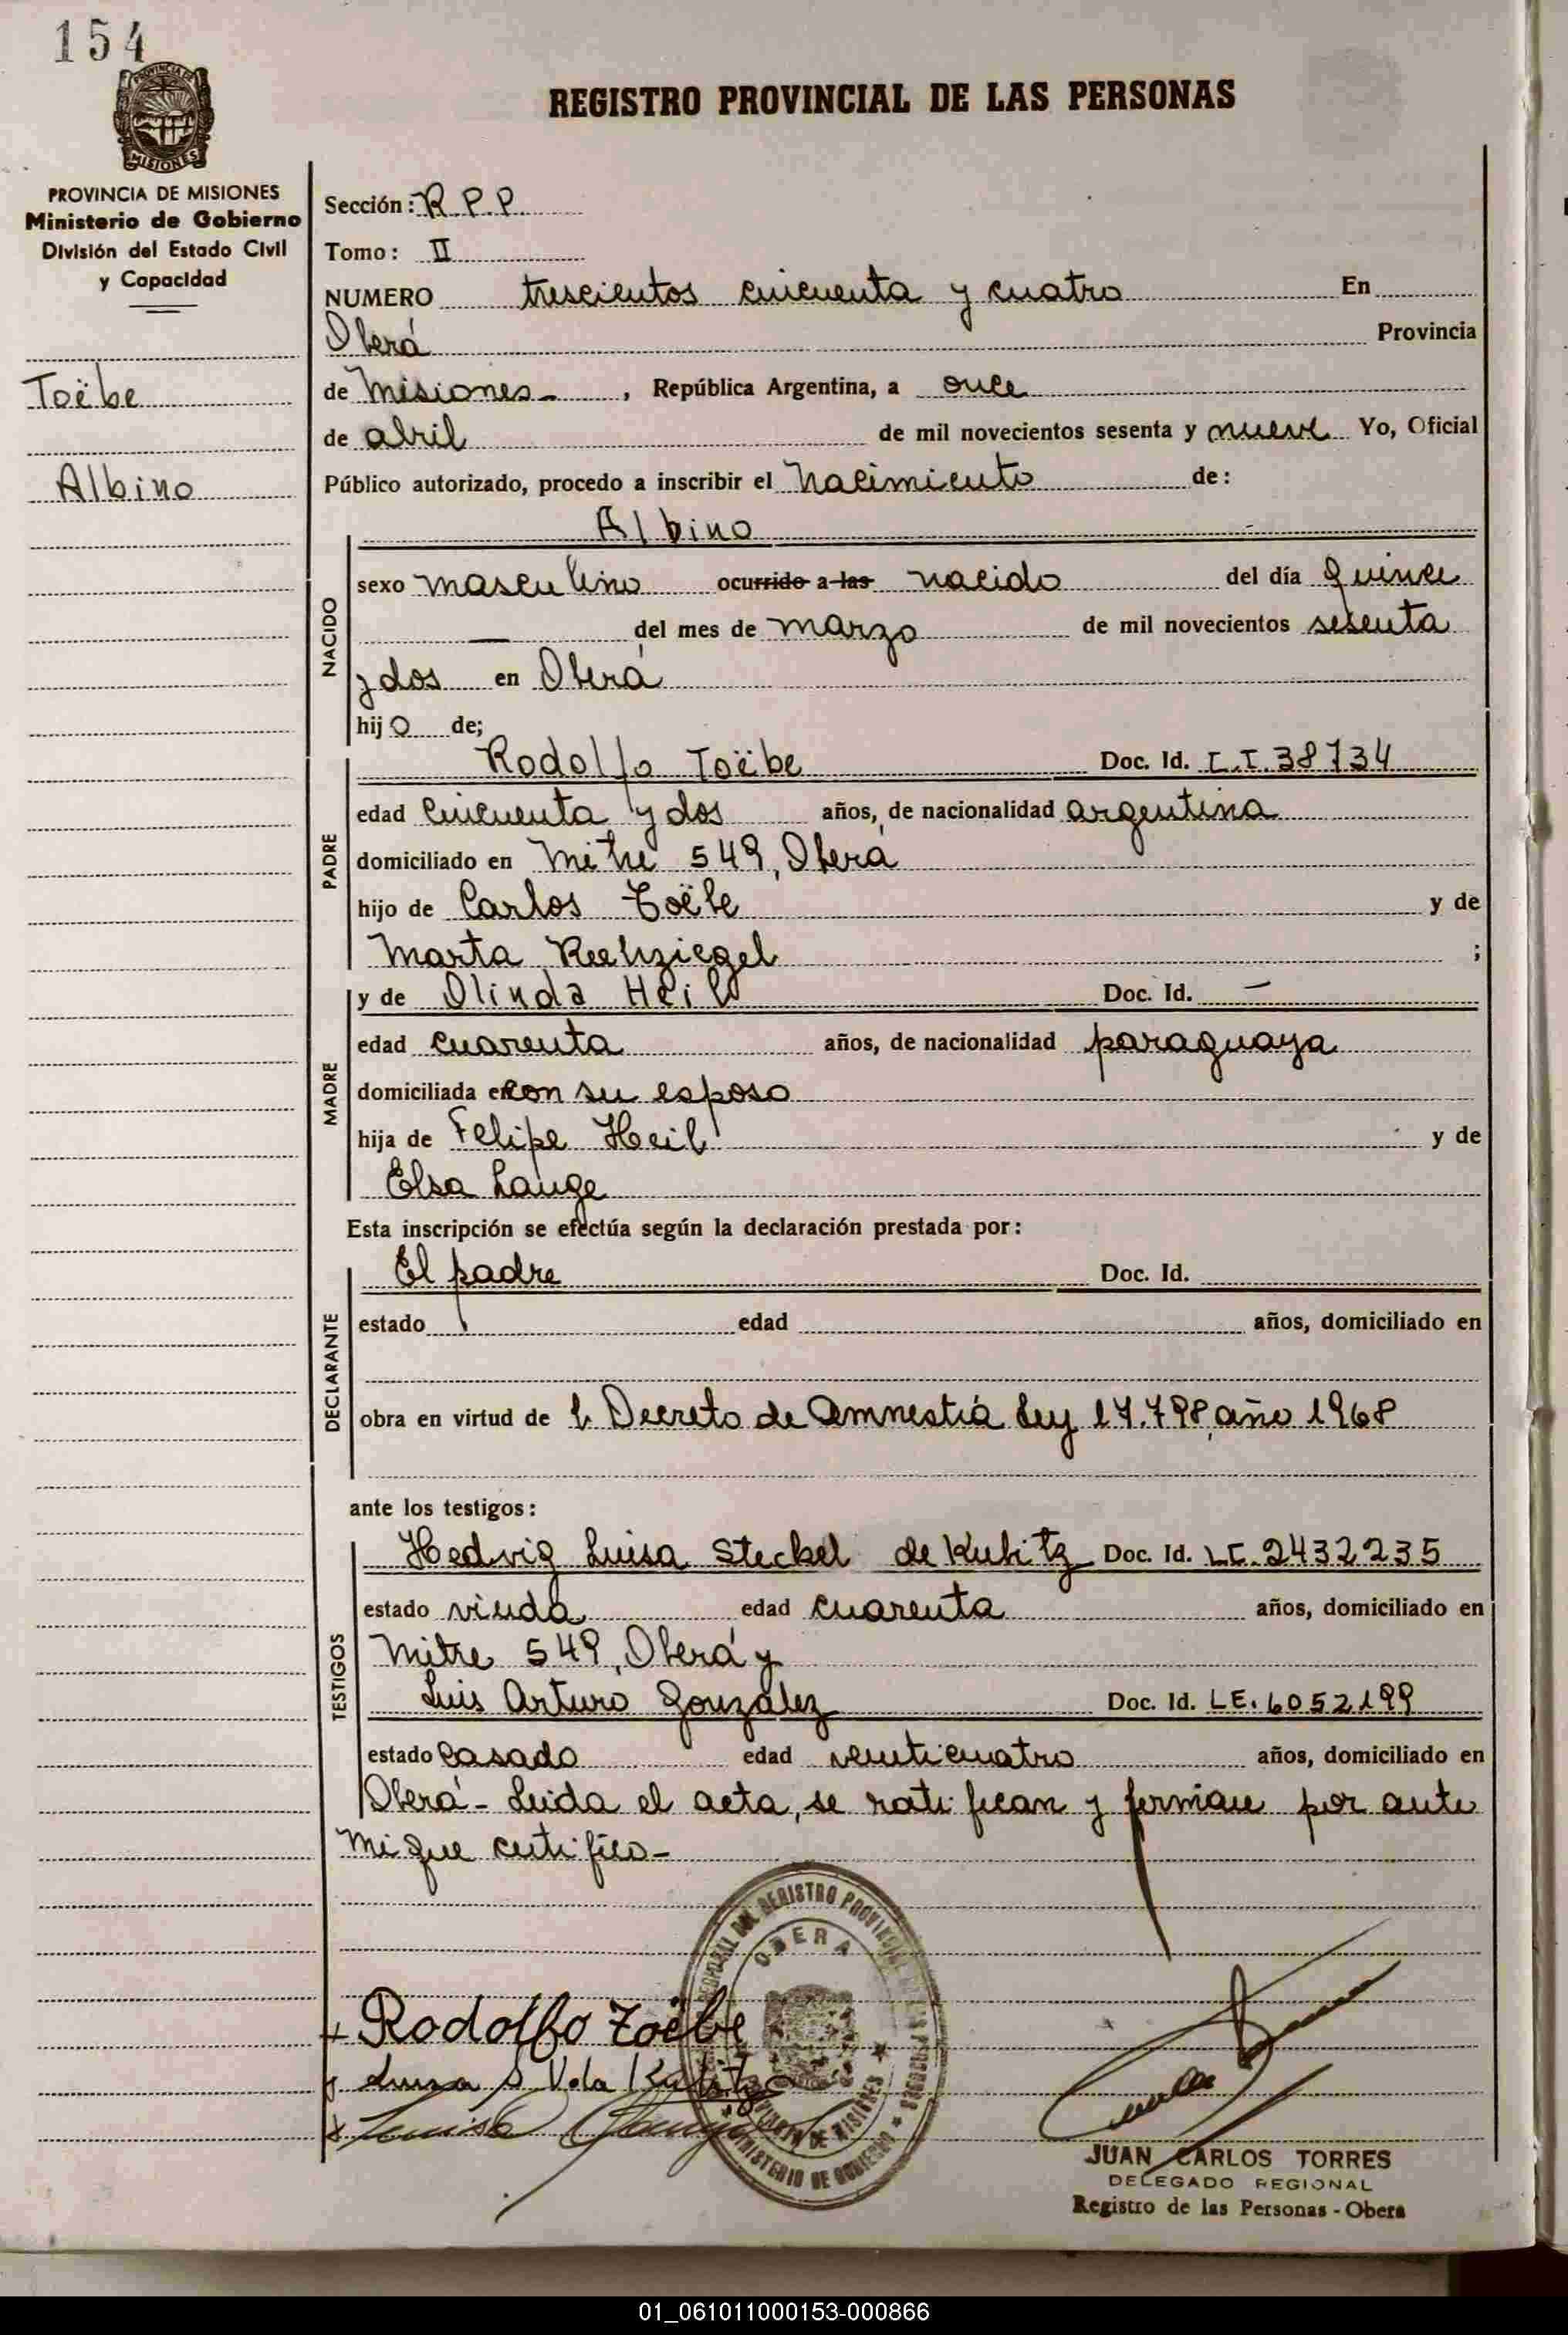 154
PROVINCIA DE
MISIONES
PROVINCIA DE MISIONES
Ministerio de Gobierno
División del Estado Civil
y Capacidad
Toëbe
Albino
REGISTRO PROVINCIAL DE LAS PERSONAS
Sección: R.P.P.
Tomo: II
NUMERO trescientos cincuenta y cuatro En
Oberá Provincia
de Misiones - , República Argentina, a once
de abril de mil novecientos sesenta y nueve Yo, Oficial
Público autorizado, procedo a inscribir el Nacimiento de:
Albino
NACIDO
sexo masculino ocurrido a las nacido del día quince
— del mes de marzo de mil novecientos sesenta
y dos en Oberá
hijo de;
PADRE
Rodolfo Toëbe Doc. Id. L.I. 38734
edad cincuenta y dos años, de nacionalidad argentina
domiciliado en Mitre 549, Oberá
hijo de Carlos Toëbe y de
Marta ;
MADRE
y de Olinda Heil Doc. Id. —
edad cuarenta años, de nacionalidad paraguaya
domiciliada en con su esposo
hija de Felipe Heil y de
Elsa Lange
Esta inscripción se efectúa según la declaración prestada por:
DECLARANTE
El padre Doc. Id.
estado edad años, domiciliado en
obra en virtud de Decreto de Amnestiá Ley 17.798, año 1968
ante los testigos:
TESTIGOS
Hedvig Luisa Steckel de Kubitz Doc. Id. LC. 2432235
estado viuda edad cuarenta años, domiciliado en
Mitre 549, Oberá y
Luis Arturo González Doc. Id. LE. 6052199
estado casado edad veinticuatro años, domiciliado en
Oberá - Leida el acta, se ratifican y firman por ante
mi que certifico -
OBERA
Rodolfo Toëbe
Luisa S. Vda Kubitz
JUAN CARLOS TORRES
DELEGADO REGIONAL
Registro de las Personas - Obera
01_061011000153-000866